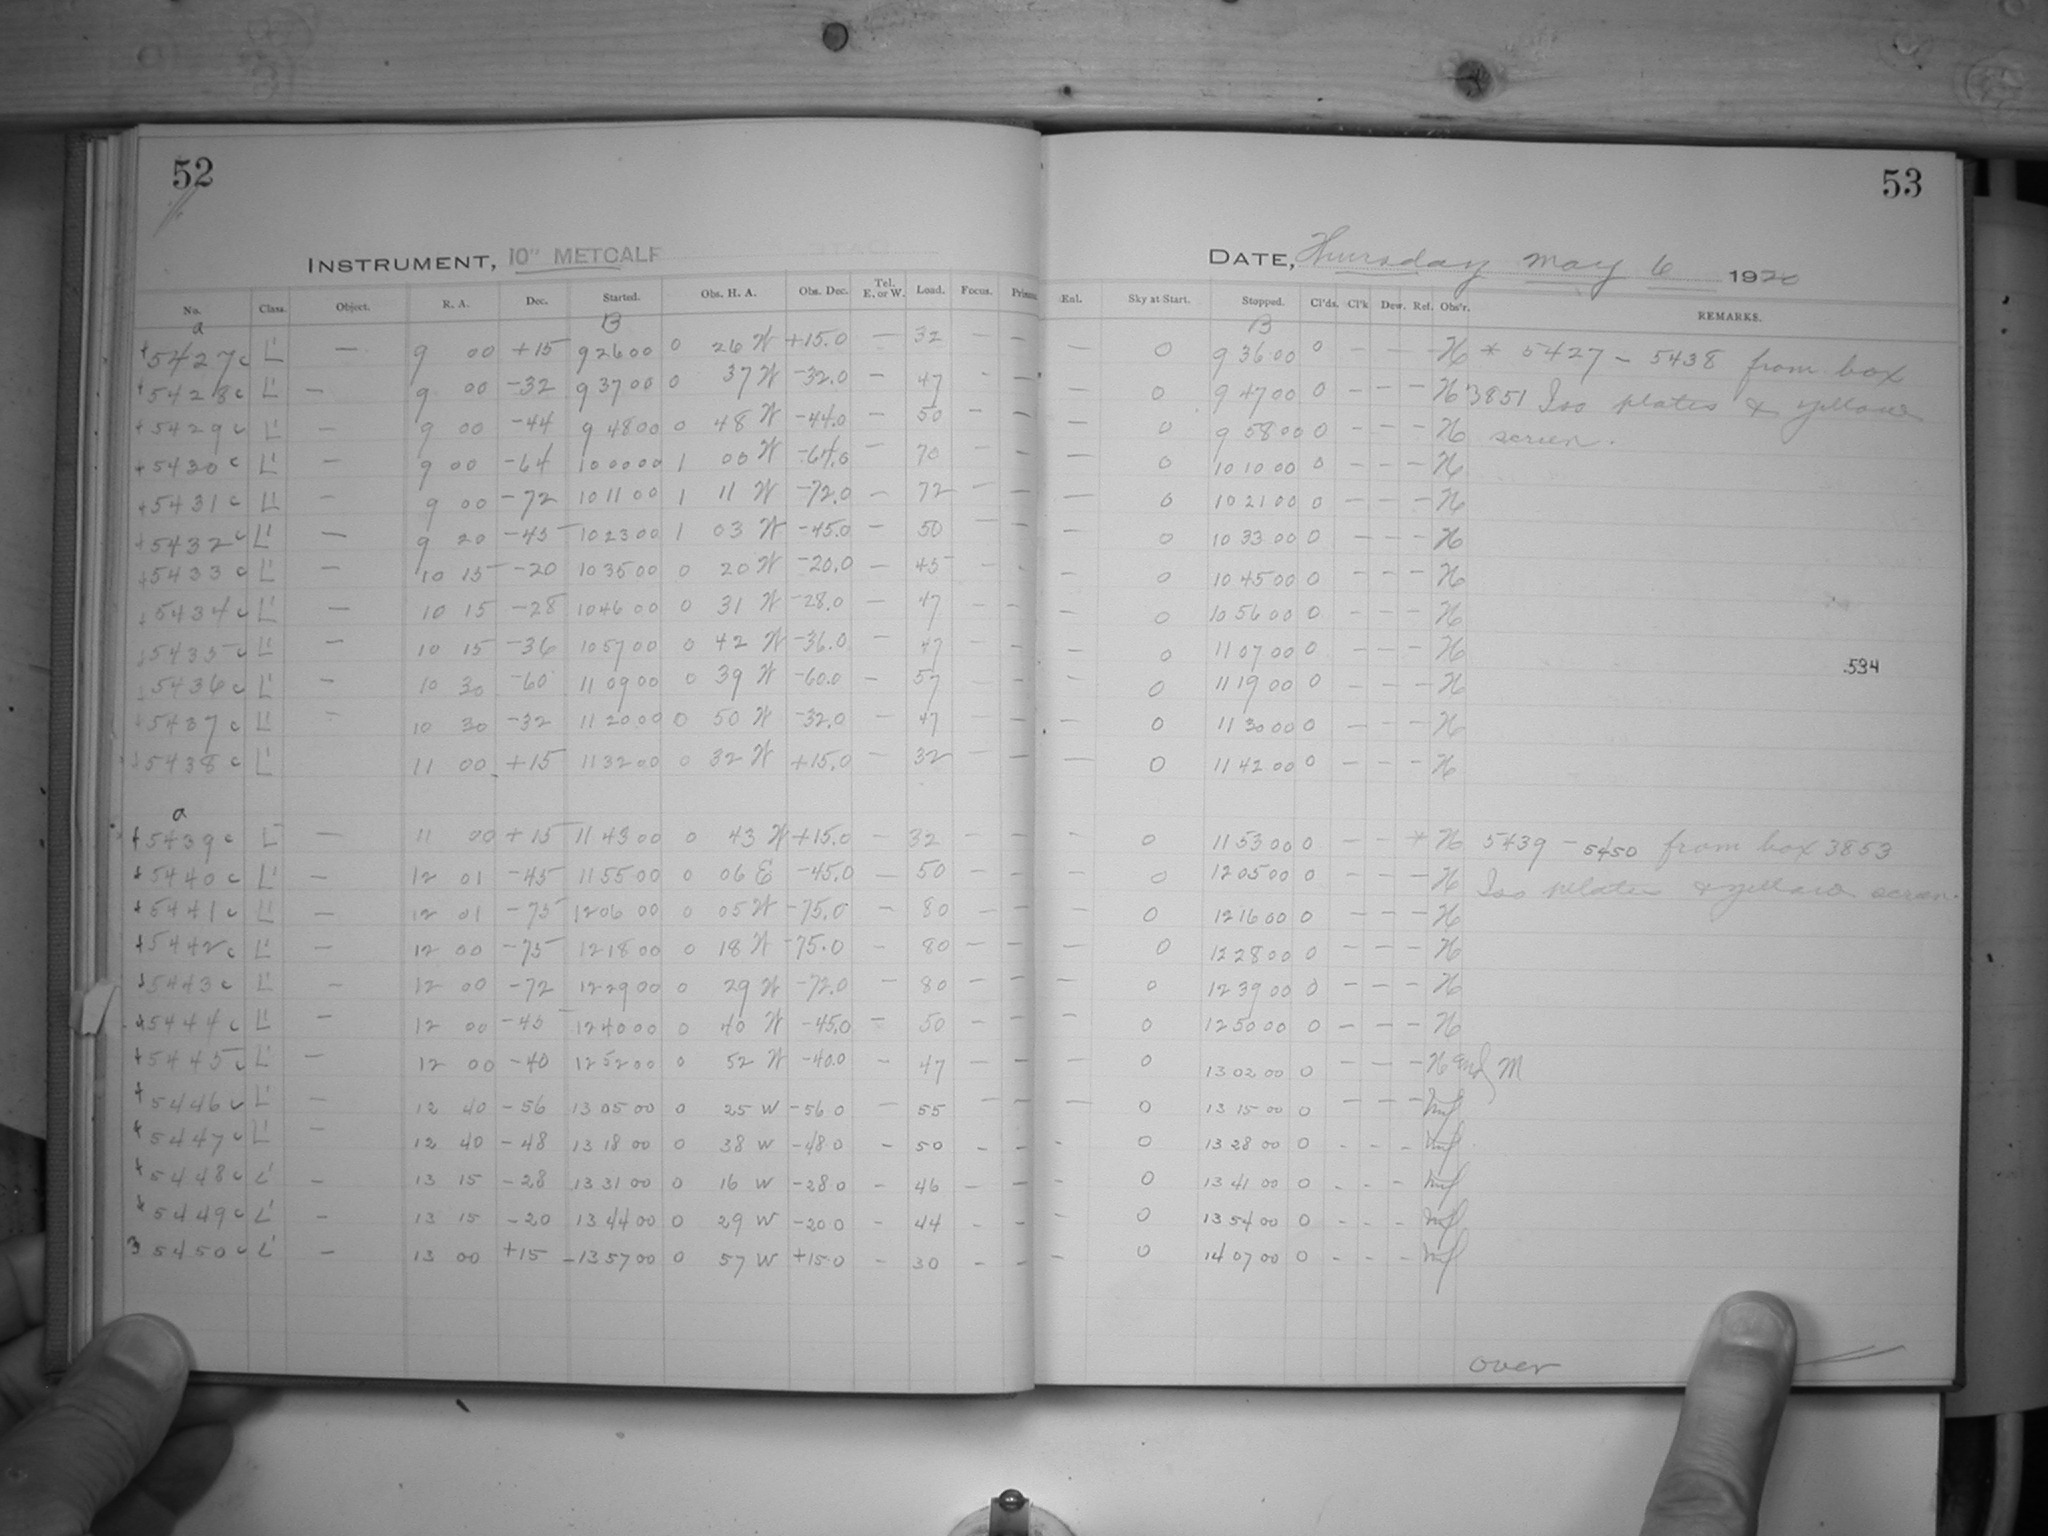 52
53
INSTRUMENT, 10" METCALF
DATE, Thursday May 6 1920
No. Class. Object. R. A. Dec. Started. Obs. H. A. Obs. Dec. Tel. E. or W. Load. Focus. Enl. Sky at Start. Stopped. Cl'ds. Cl'k Dew. Ref. Obs'r. REMARKS.
a B B
+5427c L' — 9 00 +15 9 26 00 0 26 W +15.0 — 32 — — — 0 9 36 00 0 — — — H * 5427 - 5438 from box
+5428c L' — 9 00 -32 9 37 00 0 37 W -32.0 — 47 - — — 0 9 47 00 0 — — — H 3851 Iso plates & yellow
+5429c L' — 9 00 -44 9 48 00 0 48 W -44.0 — 50 — — — 0 9 58 00 0 — — — H screen.
+5430c L' — 9 00 -64 10 00 00 1 00 W -64.0 — 70 — — — 0 10 10 00 0 — — — H
+5431c L' — 9 00 -72 10 11 00 1 11 W -72.0 — 72 — — — 0 10 21 00 0 — — — H
+5432c L' — 9 20 -45 10 23 00 1 03 W -45.0 — 50 — — — 0 10 33 00 0 — — — H
+5433c L' — 10 15 -20 10 35 00 0 20 W -20.0 — 45 - - — 0 10 45 00 0 — — — H
+5434c L' — 10 15 -28 10 46 00 0 31 W -28.0 — 47 - - — 0 10 56 00 0 — — — H
+5435c L' — 10 15 -36 10 57 00 0 42 W -36.0 — 47 — — — 0 11 07 00 0 — — — H
.534
+5436c L' — 10 30 -60 11 09 00 0 39 W -60.0 — 57 — — — 0 11 19 00 0 — — — H
+5437c L' — 10 30 -32 11 20 00 0 50 W -32.0 — 47 — — — 0 11 30 00 0 — — — H
+5438c L' 11 00 +15 11 32 00 0 32 W +15.0 — 32 — — — 0 11 42 00 0 — — — H
a
+5439c L' — 11 00 +15 11 43 00 0 43 W +15.0 — 32 — — — 0 11 53 00 0 — — * H 5439 - 5450 from box 3853
+5440c L' — 12 01 -45 11 55 00 0 06 E -45.0 — 50 — — — 0 12 05 00 0 — — — H Iso plates & yellow screen.
+5441c L' — 12 01 -75 12 06 00 0 05 W -75.0 — 80 — — — 0 12 16 00 0 — — — H
+5442c L' — 12 00 -75 12 18 00 0 18 W -75.0 — 80 — — — 0 12 28 00 0 — — — H
+5443c L' — 12 00 -72 12 29 00 0 29 W -72.0 — 80 — — — 0 12 39 00 0 — — — H
+5444c L' — 12 00 -45 12 40 00 0 40 W -45.0 — 50 — — — 0 12 50 00 0 — — — H
+5445c L' — 12 00 -40 12 52 00 0 52 W -40.0 — 47 — — — 0 13 02 00 0 — — — H and M
+5446c L' — 12 40 -56 13 05 00 0 25 W -56 0 — 55 — — — 0 13 15 00 0 — — —
+5447c L' — 12 40 -48 13 18 00 0 38 W -48 0 - 50 - - - 0 13 28 00 0 - - -
+5448c L' — 13 15 -28 13 31 00 0 16 W -28 0 - 46 — — - 0 13 41 00 0 - - -
+5449c L' — 13 15 -20 13 44 00 0 29 W -20 0 - 44 - - - 0 13 54 00 0 - - -
3 5450c L' — 13 00 +15 13 57 00 0 57 W +15.0 - 30 - - - 0 14 07 00 0 - - -
over